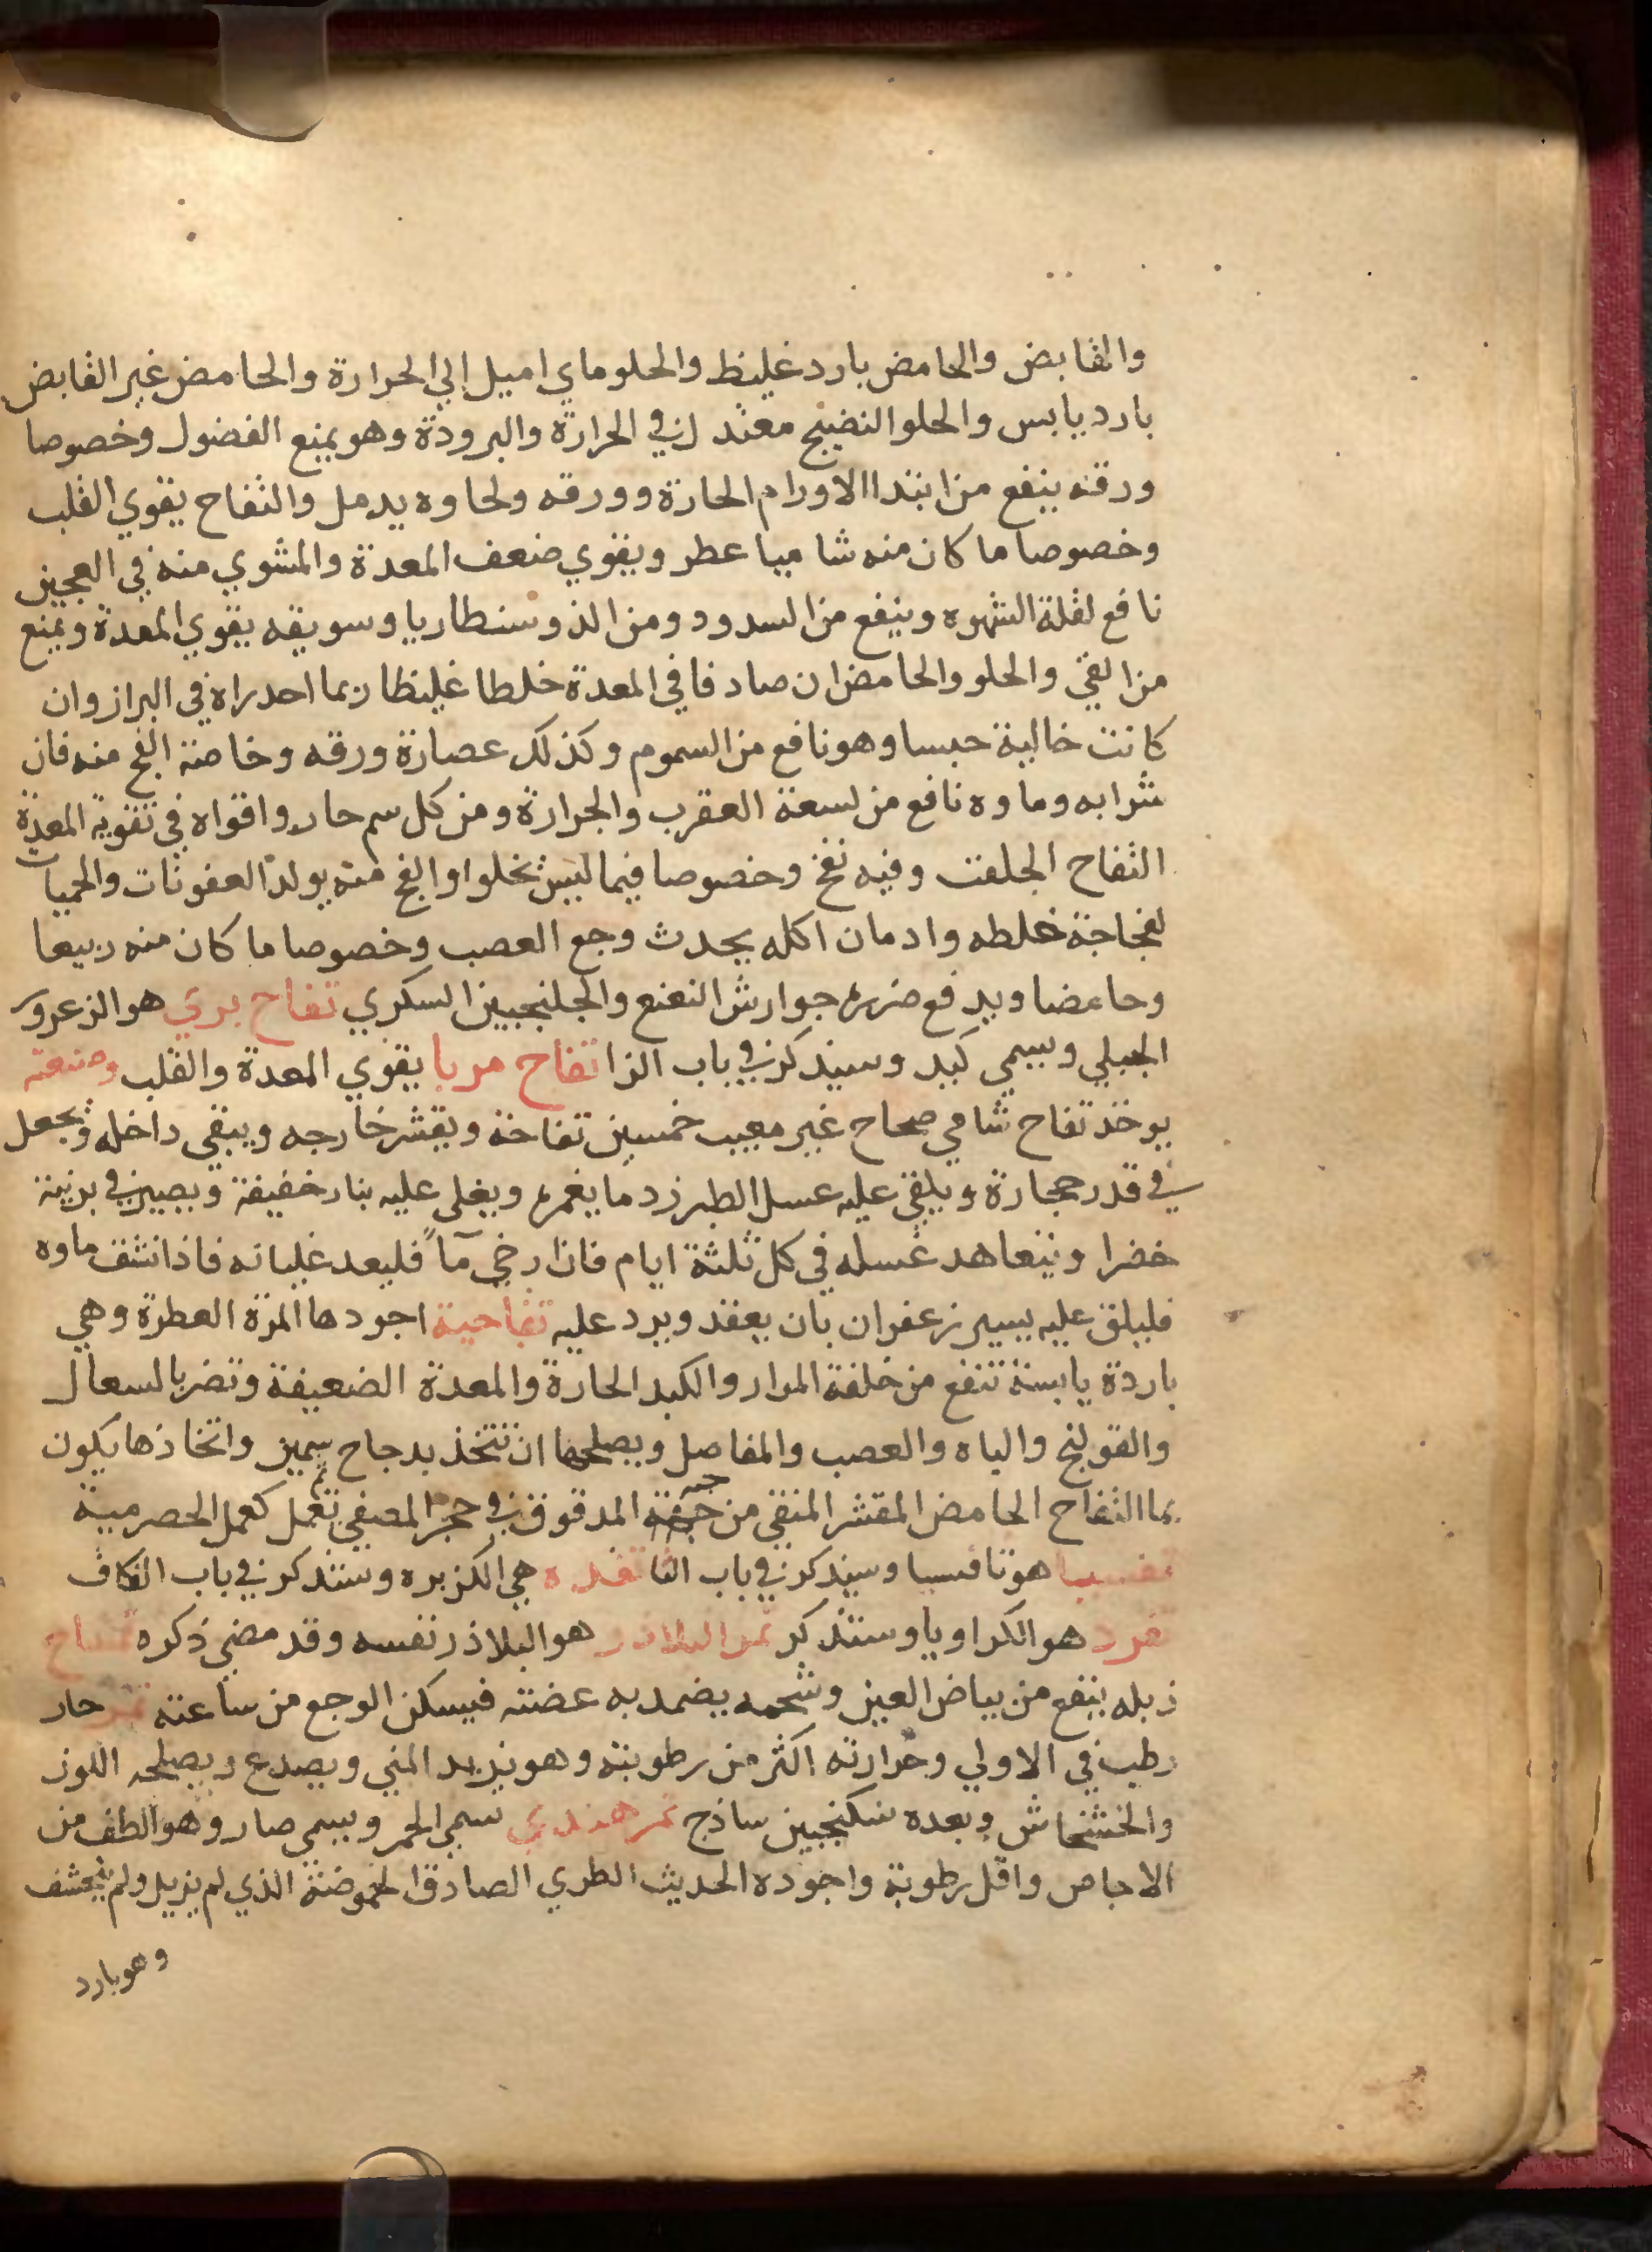 والقابض والحامض بارد غليظ والحلو ماي اميل الي الحرارة والحامض غير القابض
بارد يابس والحلو النضيج معتدل في الحرارة والبرودة وهو يمنع الفضول وخصوصا
ورقه ينفع من ابتدا الاورام الحارة وورقه ولحاوه يدمل والتفاح يقوي القلب
وخصوصا ما كان منه شاميا عطر ويقوي ضعف المعدة والمشوي منه في العجين
نافع لقلة الشهوه وينفع من السدود ومن الذوسنطاريا وسويقه يقوي المعدة ويمنع
من القي والحلو والحامض ان صادفا في المعدة خلطا غليظا ربما احدراه في البراز وان
كانت خالية حبسا وهو نافع من السموم وكذلك عصارة ورقه وخاصة الفج منه فان
شرابه وماوه نافع من لسعة العقرب والجرارة ومن كل سم حار واقواه في تقوية المعدة
التفاح الجلفت وفيه نفخ وخصوصا فيما ليس بحلوا والفج منه يولد العفونات والحميات
لفجاجة خلطه وادمان اكله يحدث وجع العصب وخصوصا ما كان منه ربيعا
وحامضا ويدفع ضرره جوارش النعنع والجلنجبين السكري تفاح بري هو الزعرور
الجبلي ويسمي كبد وسيذكر في باب الزا تفاح مربا يقوي المعدة والقلب وصنعته
يوخذ تفاح شامي صحاح غير معيب خمسين تفاحة ويقشر خارجه ويبقي داخله ويجعل
في قدر حجارة ويلقي عليه عسل الطبرزد ما يغمره ويغلي عليه بنار خفيفة ويصير في برنية
خضرا ويتعاهد غسله في كل ثلثة ايام فان ارخي مآً فليعد غليانه فاذا نشف ماوه
فليلق عليه يسير زعفران بان يعقد ويرد عليه تفاحية اجودها المزة العطرة وهي
باردة يابسة تنفع من خلفة المرار والكبد الحارة والمعدة الضعيفة وتضر بالسعال
والقولنج والباه والعصب والمفاصل ويصلحها ان تتخذ بدجاج سمين واتخاذها يكون
بما التفاح الحامض المقشر المنقي من حبه المدقوق في حجر المصفي ثم تعمل كعمل الحصرمية
تفسيا هو تافسيا وسيذكر في باب الثا تقده هي الكزبره وستذكر في باب الكاف
تقرد هو الكراويا وستذكر تمر البلاذر هو البلاذر نفسه وقد مضي ذكره تمساح
زبله ينفع من بياض العين وشحمه يضمد به عضته فيسكن الوجع من ساعته تمر حار
رطب في الاولي وحرارته اكثر من رطوبته وهو يزيد المني ويصدع ويصلحه اللوز
والخشخاش وبعده سكنجبين ساذج تمر هندي سمي الحمر ويسمي صار وهو الطف من
الاجاص واقل رطوبة واجوده الحديث الطري الصادق الحموضة الذي لم يزيل ولم يحشف
وهو بارد